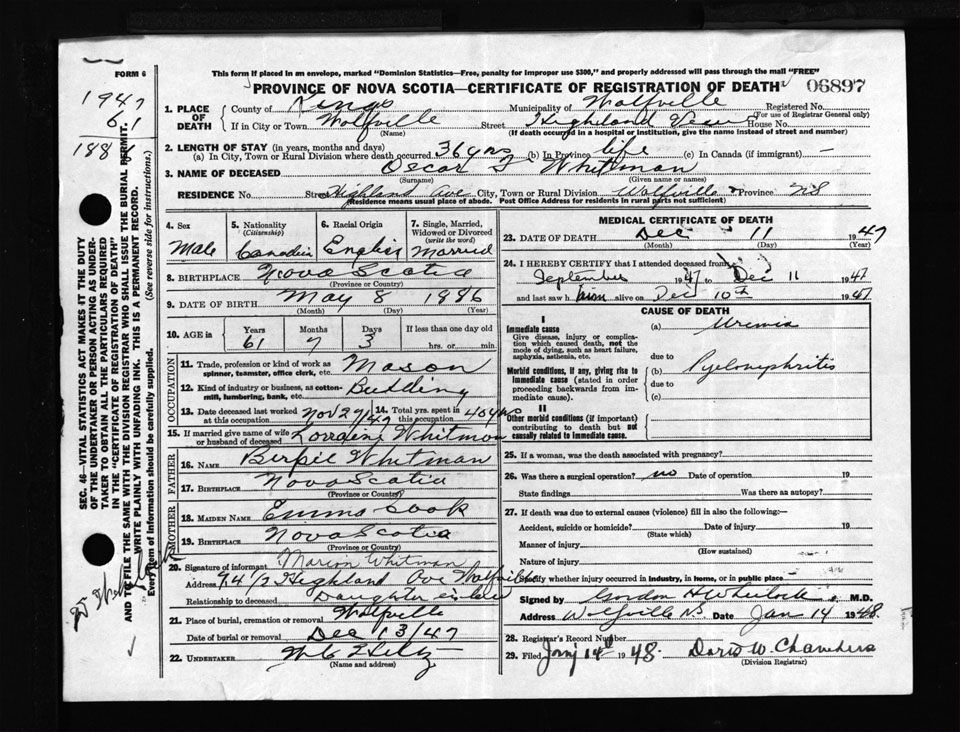 FORM 6
This form if placed in an envelope, marked "Dominion Statistics—Free, penalty for improper use $300," and properly addressed will pass through the mail "FREE"
PROVINCE OF NOVA SCOTIA—CERTIFICATE OF REGISTRATION OF DEATH
06897
1947
6.1
188
1. PLACE OF DEATH
County of Kings Municipality of Wolfville Registered No.
(For use of Registrar General only)
If in City or Town Wolfville Street Highland House No.
(Name) (If death occurred in a hospital or institution, give the name instead of street and number)
2. LENGTH OF STAY (in years, months and days)
(a) In City, Town or Rural Division where death occurred 36 yrs (b) In Province life (c) In Canada (if immigrant) —
3. NAME OF DECEASED Oscar Whitman
(Surname) (Given name or names)
RESIDENCE No. Street Highland Ave City, Town or Rural Division Wolfville Province NS
(Residence means usual place of abode. Post Office Address for residents in rural parts not sufficient)
4. Sex Male
5. Nationality (Citizenship) Canadian
6. Racial Origin English
7. Single, Married, Widowed or Divorced (write the word) Married
8. BIRTHPLACE Nova Scotia
(Province or Country)
9. DATE OF BIRTH May 8 1886
(Month) (Day) (Year)
10. AGE in Years Months Days If less than one day old
61 7 3 hrs. or min.
OCCUPATION
11. Trade, profession or kind of work as spinner, teamster, office clerk, etc. Mason
12. Kind of industry or business, as cotton-mill, lumbering, bank, etc. Building
13. Date deceased last worked at this occupation Nov 29/47 14. Total yrs. spent in this occupation 40 yrs
15. If married give name of wife or husband of deceased Lorraine Whitman
FATHER
16. NAME Whitman
17. BIRTHPLACE Nova Scotia
(Province or Country)
MOTHER
18. MAIDEN NAME Emma Cook
19. BIRTHPLACE Nova Scotia
(Province or Country)
20. Signature of informant Marion Whitman
Address 94 1/2 Highland Ave Wolfville
Relationship to deceased Daughter in law
21. Place of burial, cremation or removal Wolfville
Date of burial or removal Dec 13/47
22. UNDERTAKER
(Name and address)
MEDICAL CERTIFICATE OF DEATH
23. DATE OF DEATH Dec 11 1947
(Month) (Day) (Year)
24. I HEREBY CERTIFY that I attended deceased from
September 1947 to Dec 11 1947
and last saw him alive on Dec 10th 1947
CAUSE OF DEATH
I
Immediate cause
Give disease, injury or complication which caused death, not the mode of dying, such as heart failure, asphyxia, asthenia, etc.
(a) Uremia
due to
Morbid conditions, if any, giving rise to immediate cause (stated in order proceeding backwards from immediate cause).
(b) Pyelonephritis
due to
(c)
II
Other morbid conditions (if important) contributing to death but not causally related to immediate cause.
25. If a woman, was the death associated with pregnancy?
26. Was there a surgical operation? no Date of operation 19
State findings Was there an autopsy?
27. If death was due to external causes (violence) fill in also the following:—
Accident, suicide or homicide? Date of injury 19
(State which)
Manner of injury
(How sustained)
Nature of injury
Specify whether injury occurred in industry, in home, or in public place
Signed by Gordon H Wheelock M.D.
Address Wolfville NS Date Jan 14 1948
28. Registrar's Record Number
29. Filed Jany 14th 1948. Doris W. Chambers
(Division Registrar)
SEC. 46—VITAL STATISTICS ACT MAKES IT THE DUTY OF THE UNDERTAKER OR PERSON ACTING AS UNDERTAKER TO OBTAIN ALL THE PARTICULARS REQUIRED IN THE "CERTIFICATE OF REGISTRATION OF DEATH" AND TO FILE THE SAME WITH THE DIVISION REGISTRAR WHO SHALL ISSUE THE BURIAL PERMIT.
WRITE PLAINLY WITH UNFADING INK. THIS IS A PERMANENT RECORD.
Every item of information should be carefully supplied. (See reverse side for instructions.)